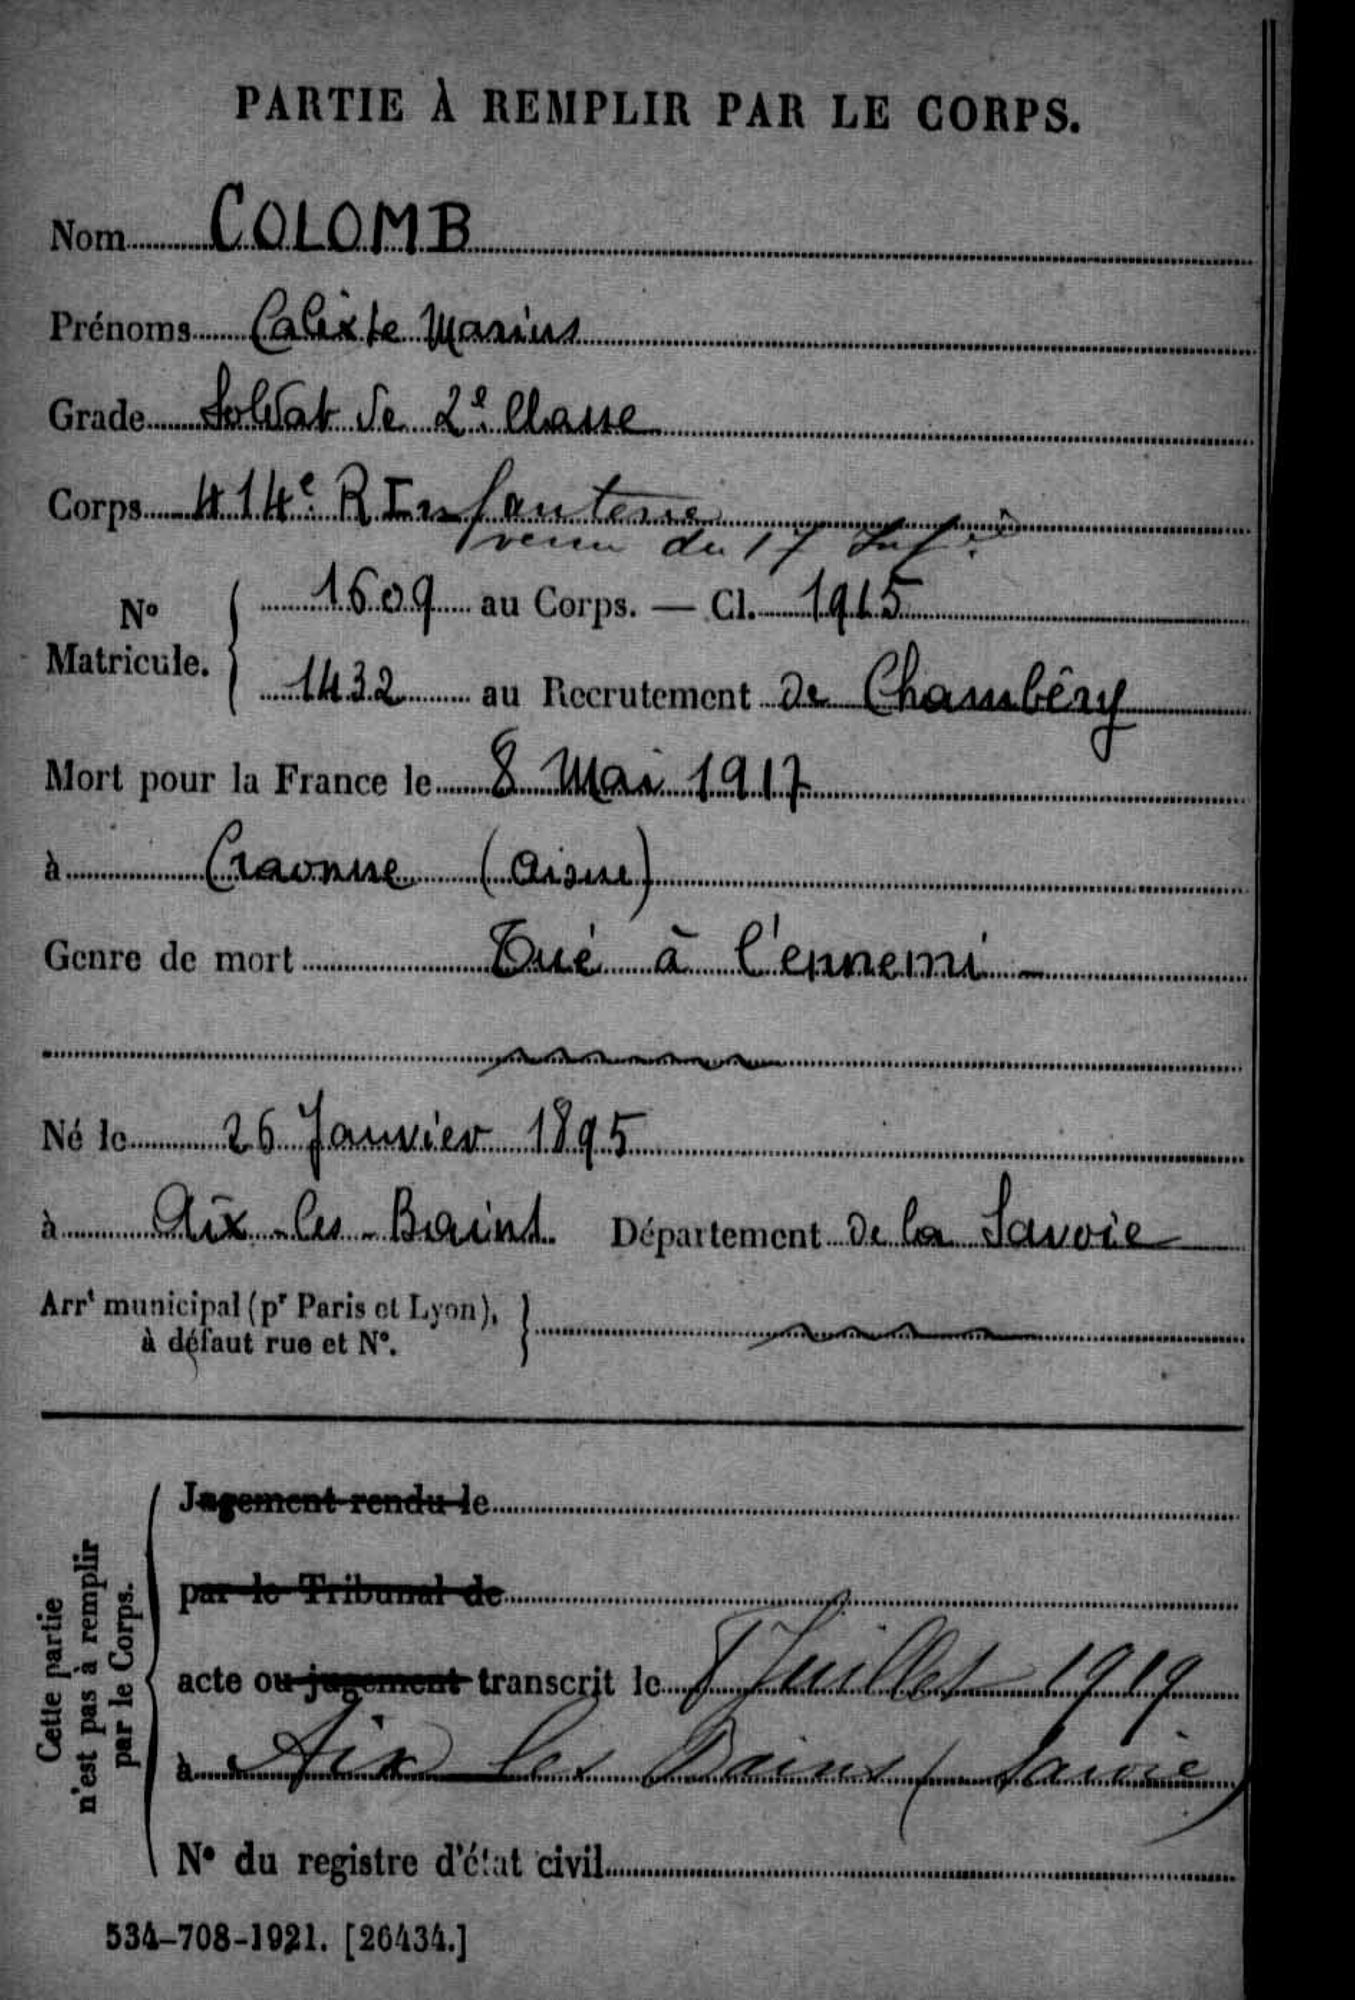 PARTIE À REMPLIR PAR LE CORPS.
Nom COLOMB
Prénoms Calixte Marius
Grade Soldat de 2e Classe
Corps 414e R Infanterie
venu du 17 Infie
No Matricule. 1609 au Corps. — Cl. 1915
1432 au Recrutement de Chambéry
Mort pour la France le 8 Mai 1917
à Craonne (Aisne)
Genre de mort Tué à l'ennemi
Né le 26 Janvier 1895
à Aix-les-Bains Département de la Savoie
Arrt municipal (pr Paris et Lyon),
à défaut rue et No.
Cette partie
n'est pas à remplir
par le Corps.
Jugement rendu le
par le Tribunal de
acte ou jugement transcrit le 8 Juillet 1919
à Aix les Bains (Savoie)
No du registre d'état civil
534-708-1921. [26434.]